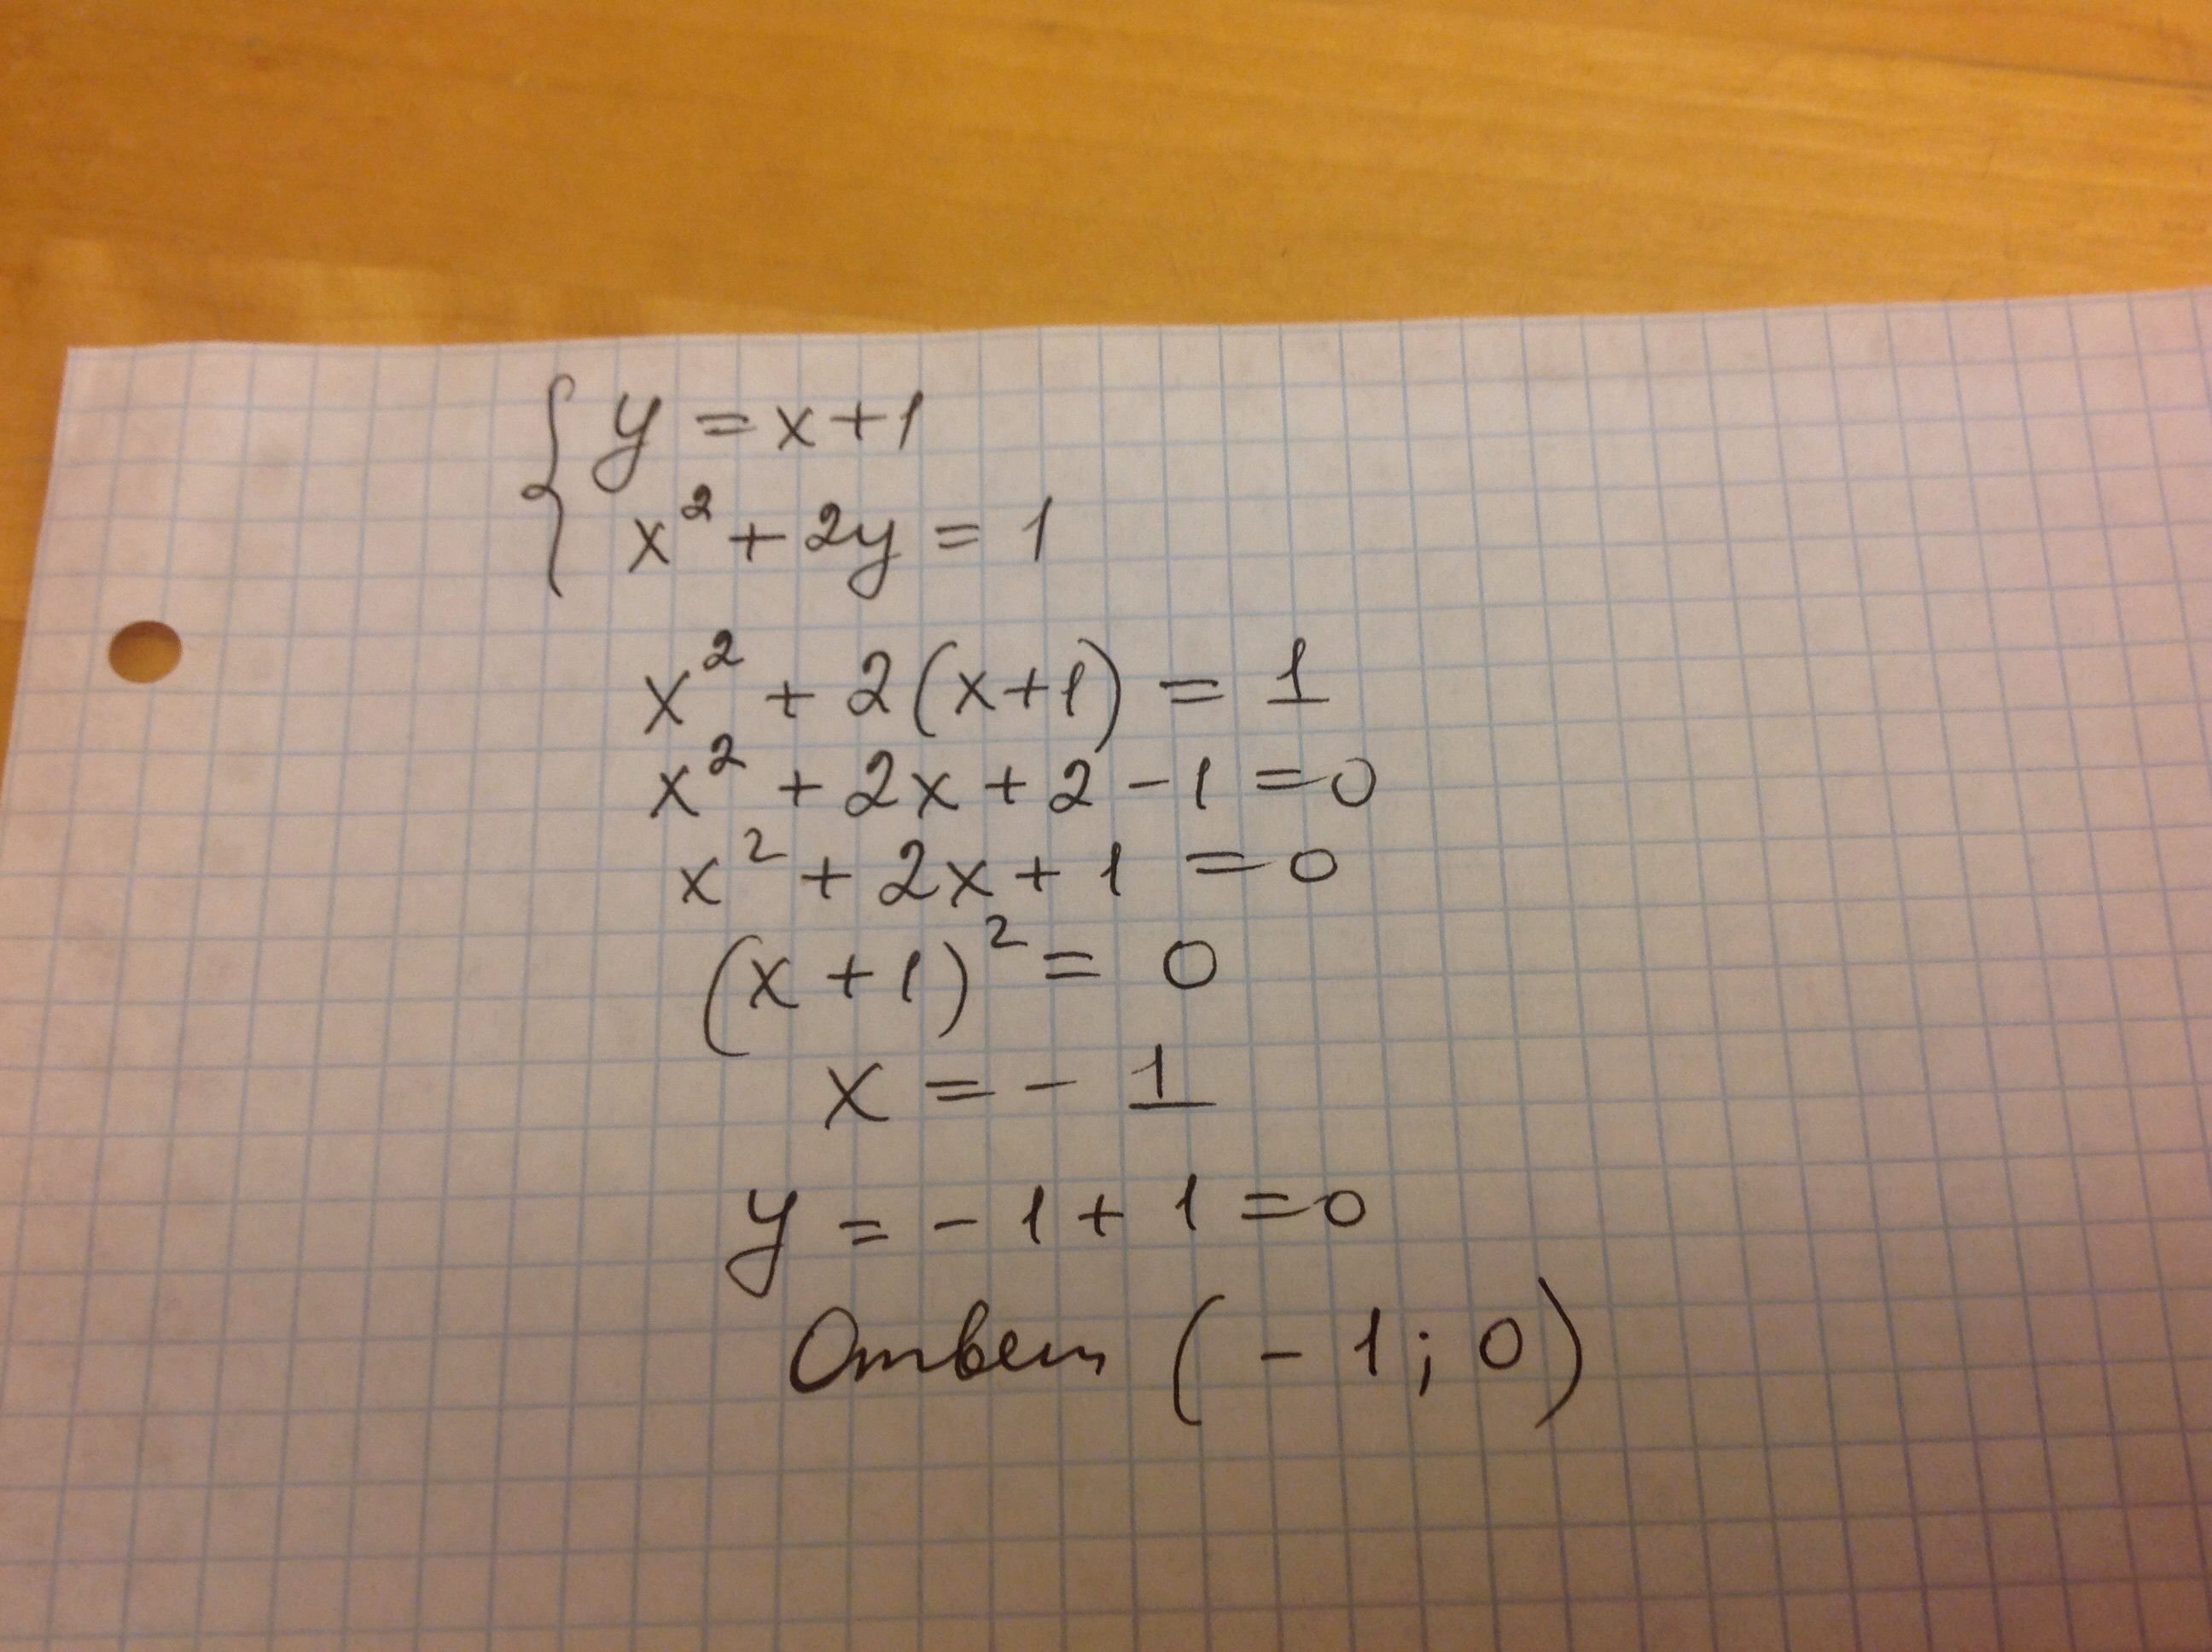 { y = x+1
x² + 2y = 1
x² + 2(x+1) = 1
x² + 2x + 2 - 1 = 0
x² + 2x + 1 = 0
(x + 1)² = 0
x = - 1
y = - 1 + 1 = 0
Ответ (- 1; 0)